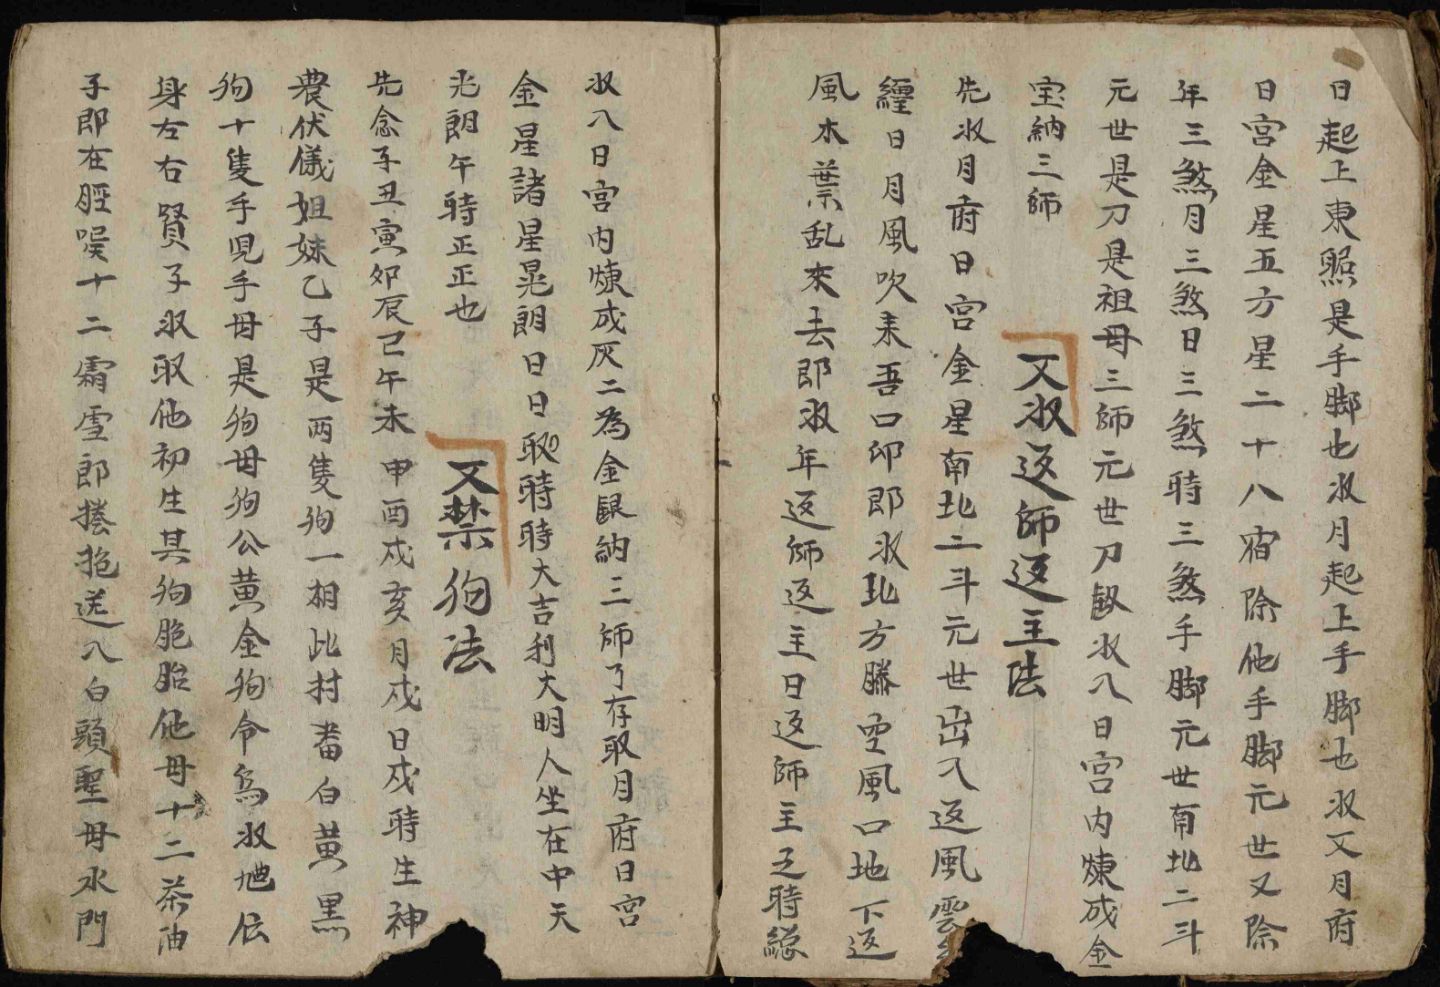 日起上東照是手脚也収月起上手脚也収又月府
日宮金星五方星二十八宿除他手脚元世又除
年三煞月三煞日三煞時三煞手脚元世南北二斗
元世是刀是祖母三師元世刀 収入日宮内煉成金
宝納三師
又収返師返主法
先収月府日宮金星南北二斗元世出入返風雲
纏日月風吹来吾口卬即収北方滕空風口地下返
風木葉乱来去郎収年返師返主日返師主之時縂
収入日宮内煉成灰二為金銀納三師了存取月府日宮
金星諸星晃朗日日 時時大吉利大明人坐在中天
光朗午時正正也
又禁狗法
先念子丑寅夘辰巳午未申酉戍亥月戍日戍時生神
農伏儀姐妹乙子是両隻狗一相比村畨白黄黒
狗十隻手児手母是狗母狗公黄金狗令為収 伝
身左右賢子収取他初生其狗胞胎他母十二茶油
子郎在脛喉十二霜雪郎捲抱送入白頭聖母水門